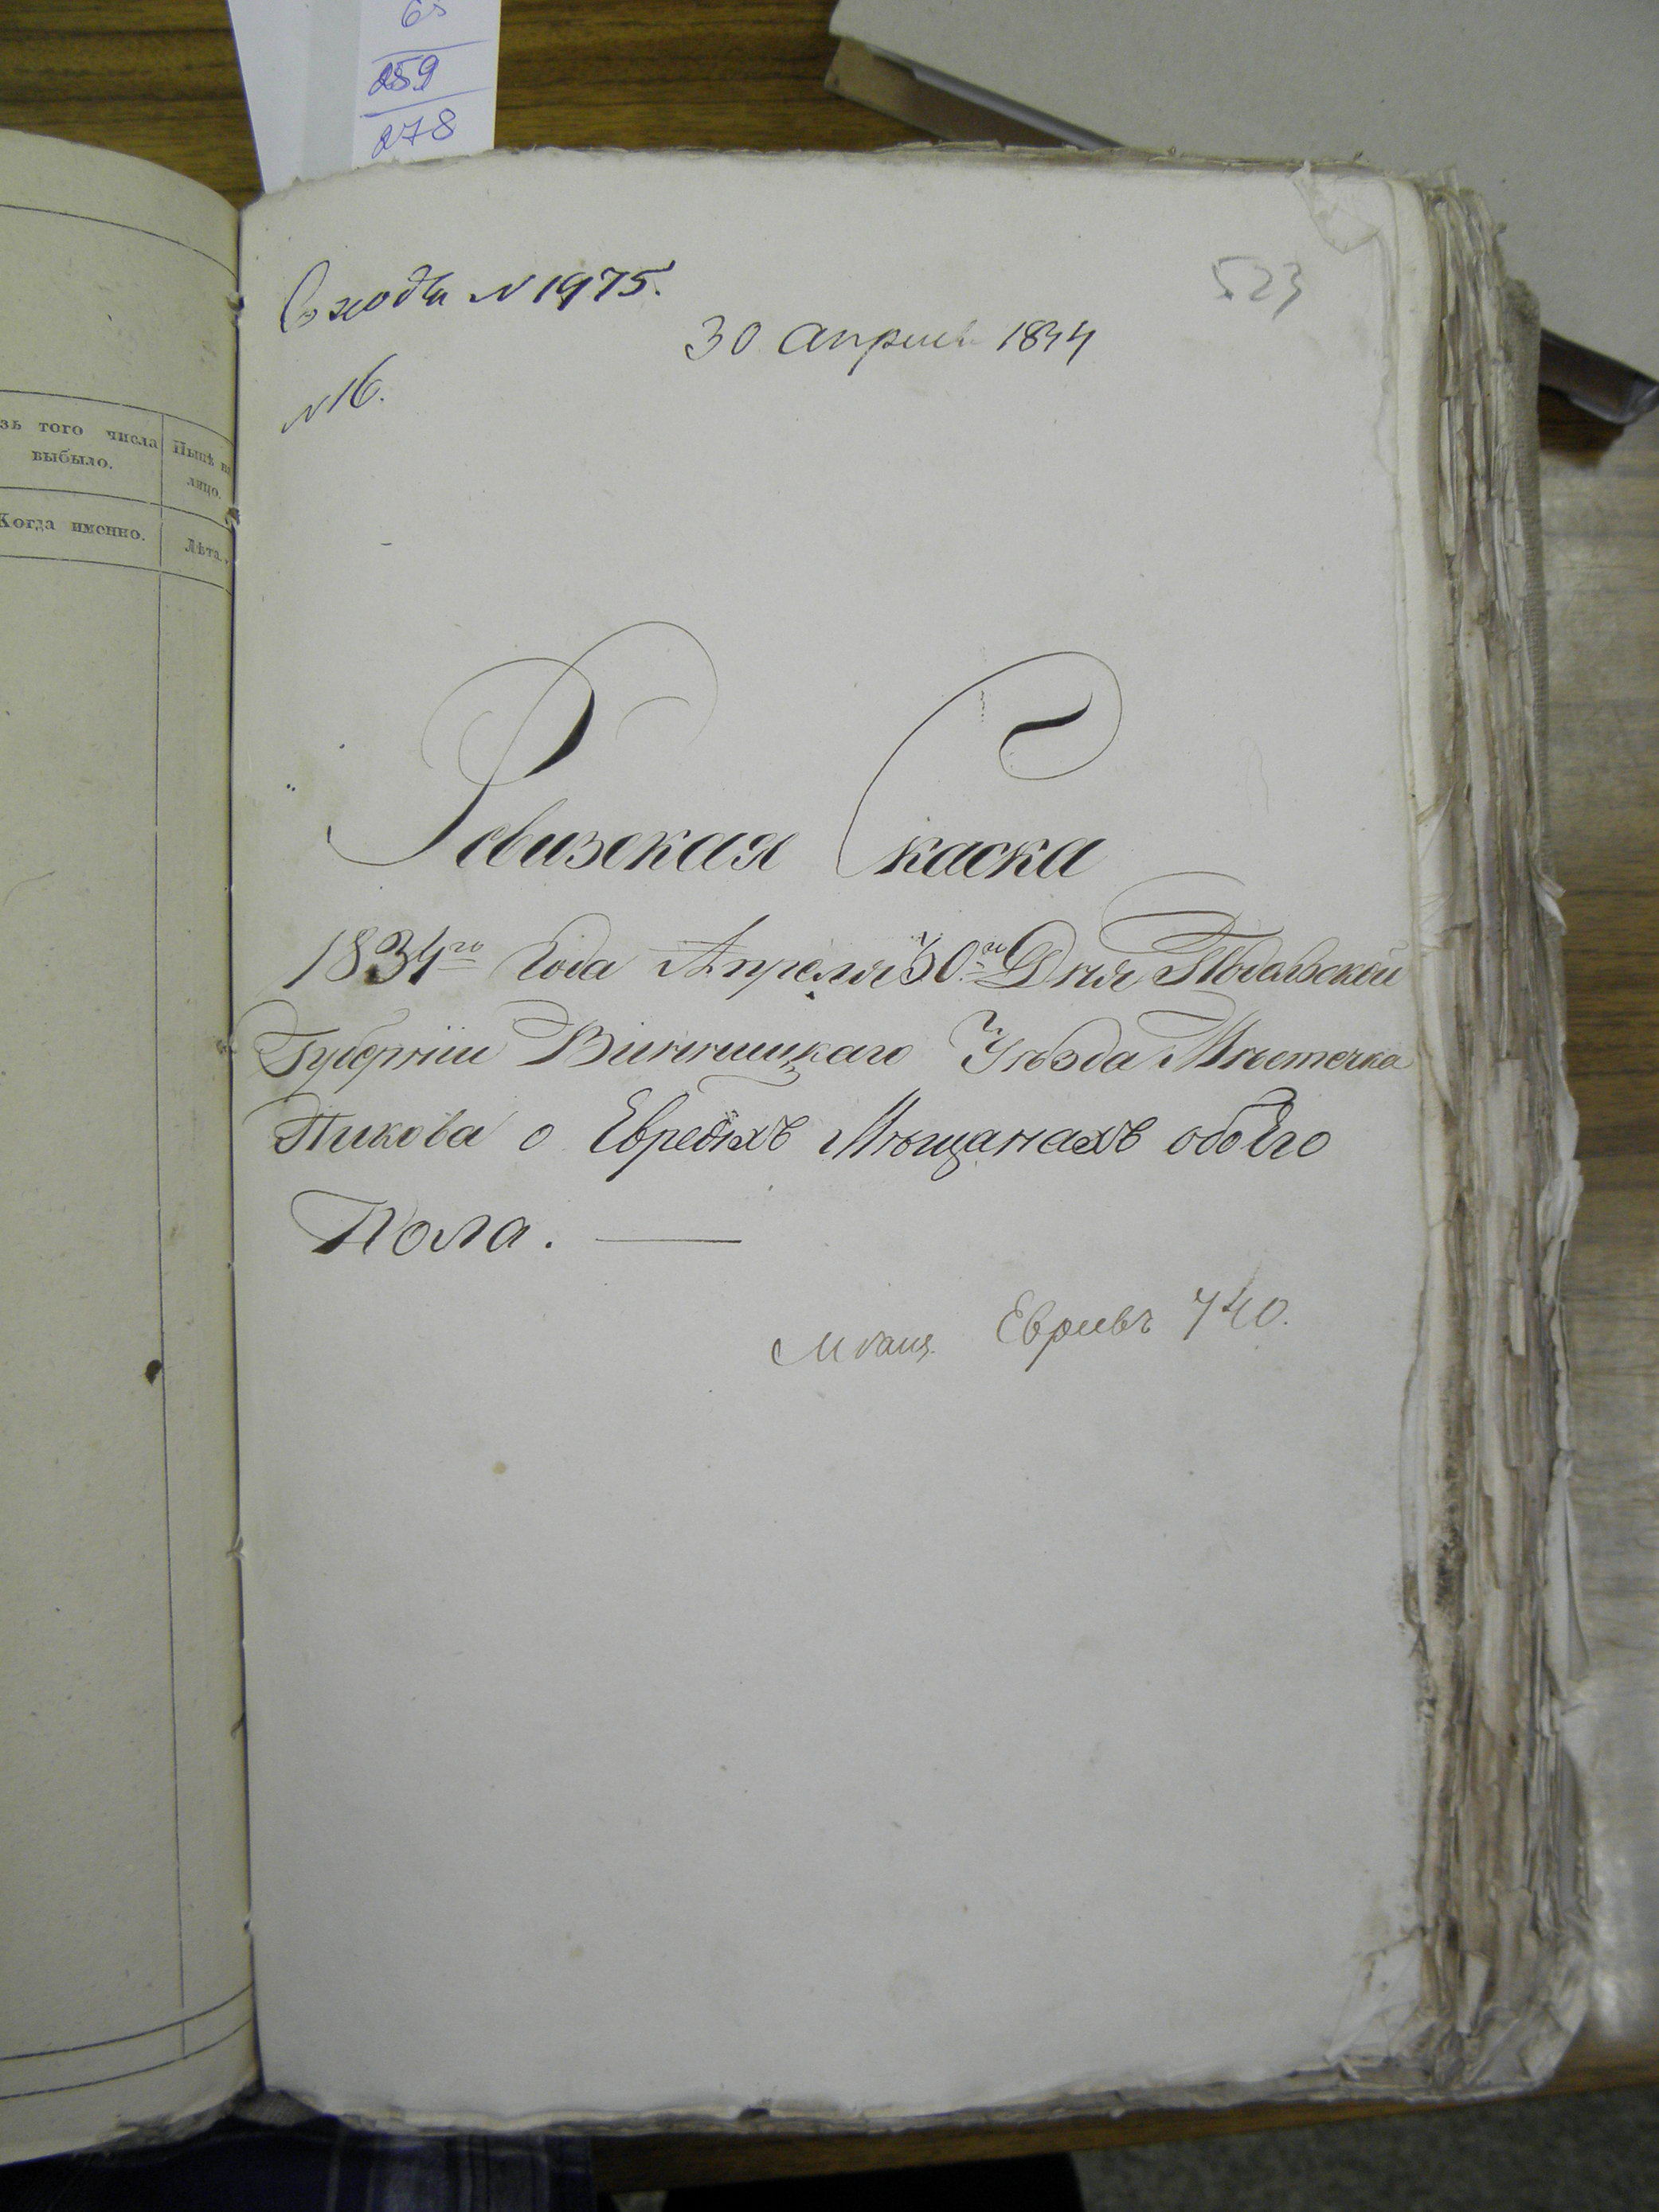 259
278
Входящ N 1975.
523
30 апреля 1834
N 16.
зъ того числа
выбыло.
Нынѣ на
лицо.
Когда именно.
Лѣта.
Ревизская Скаска
1834го Года Апреля 30го Дня Подольской
Губернии Винницкаго Уѣзда Мѣстечка
Пикова о Евреяхъ Мѣщанахъ обоего
Пола.
Мѣщ. Евреевъ 740.